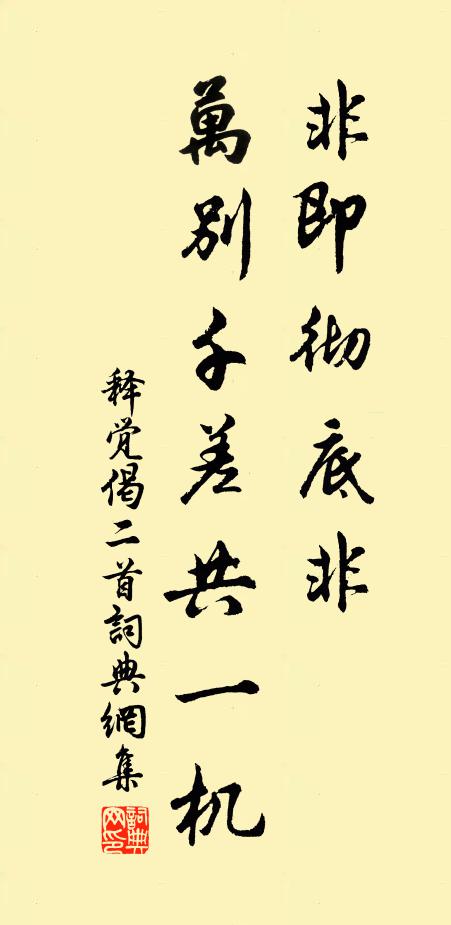 非即彻底非
萬别千差共一机
释觉偈二首詞典網集
詞典网印